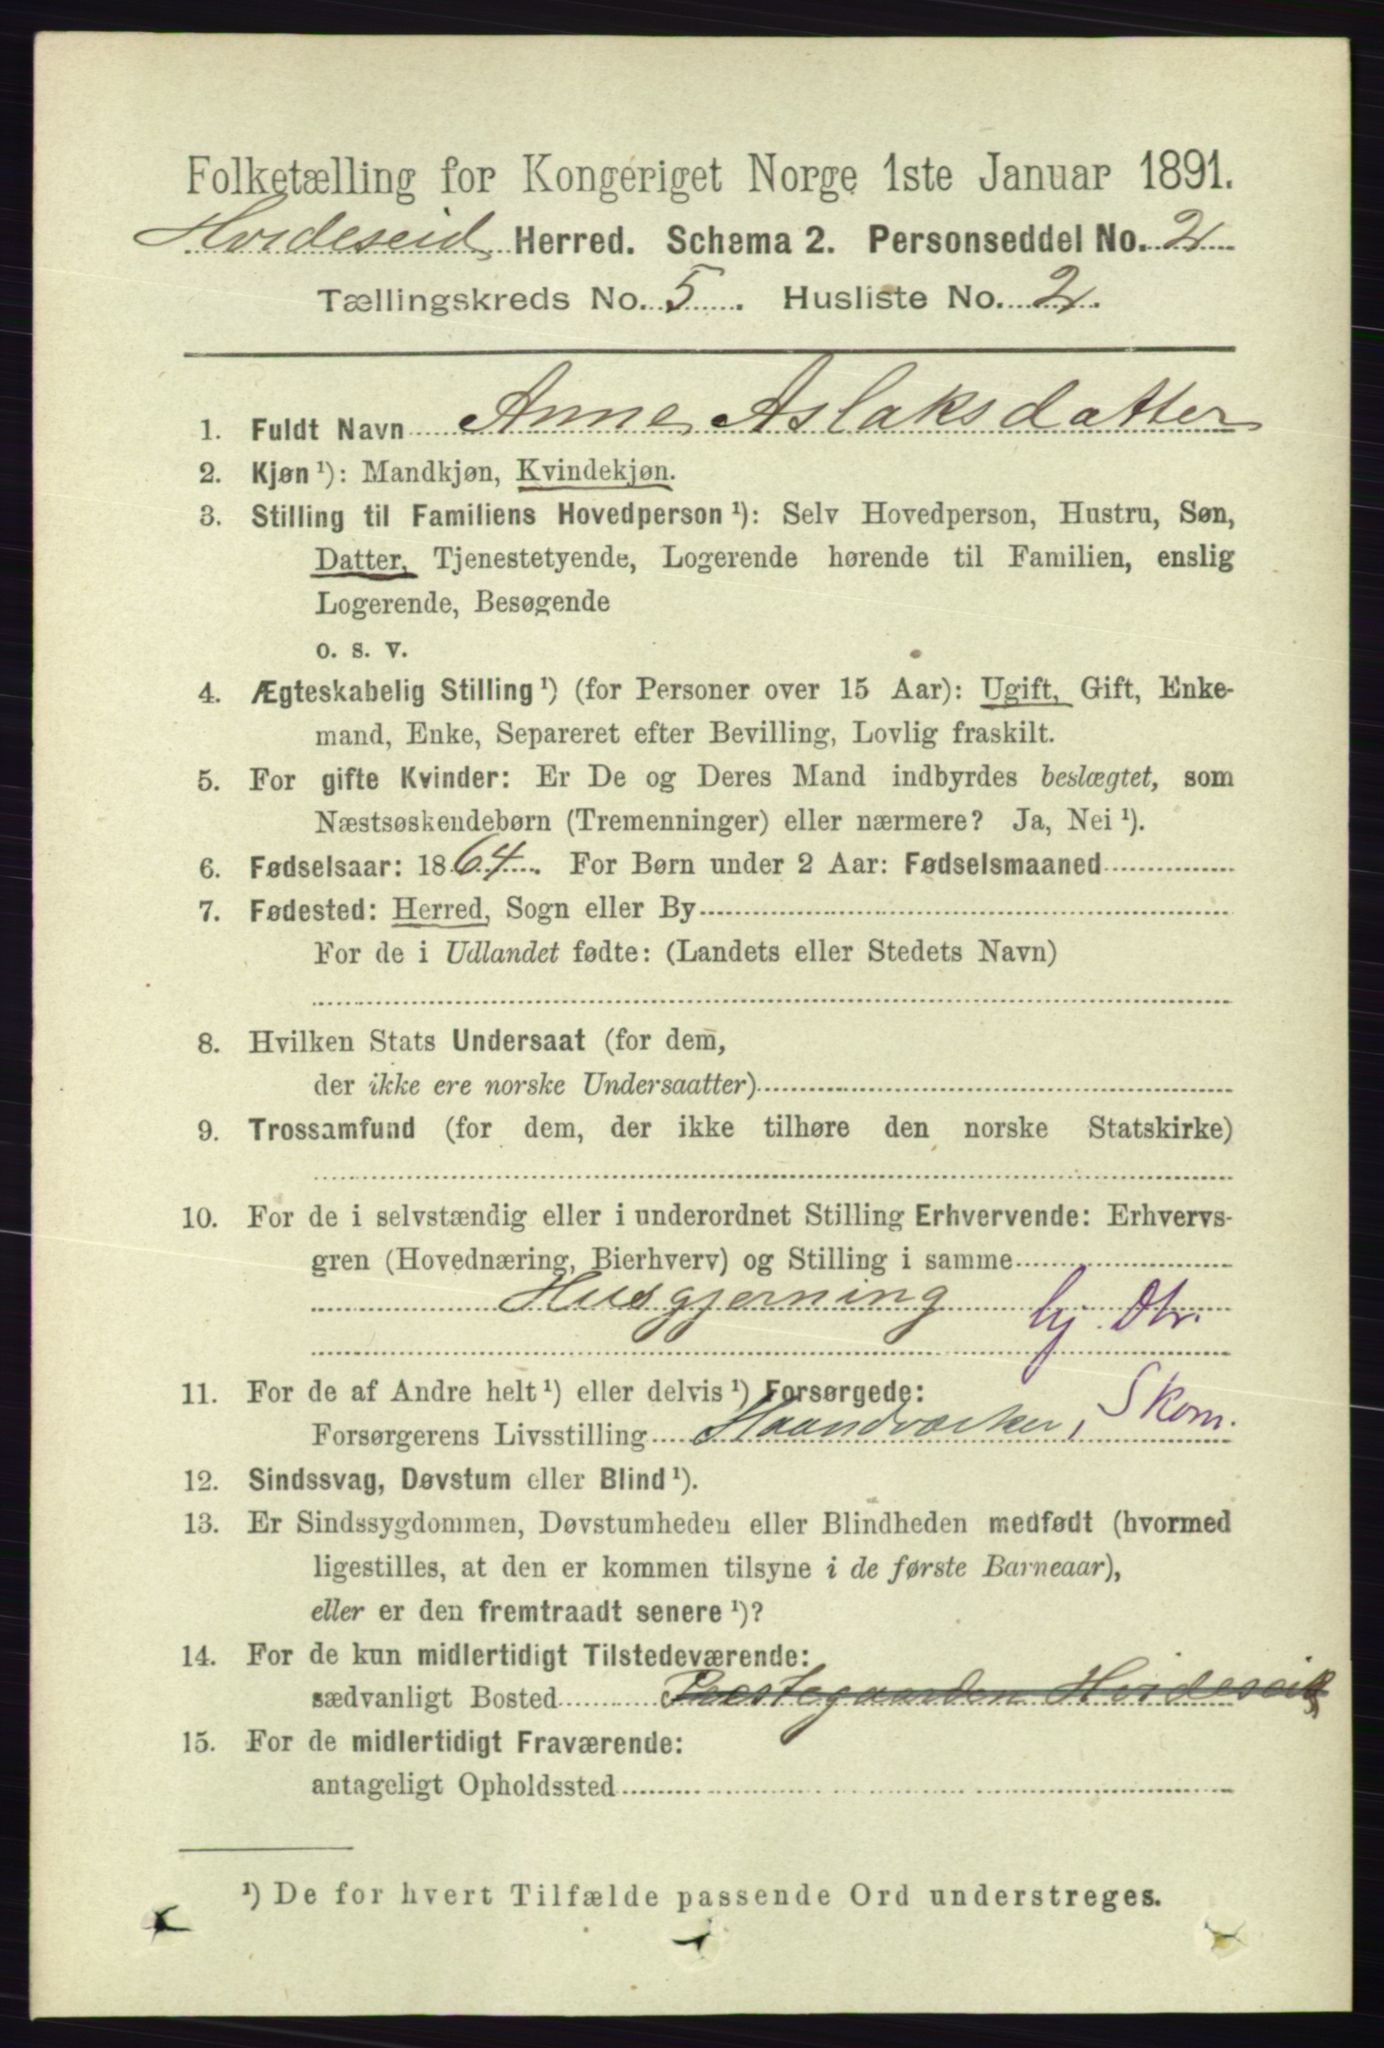 Folketælling for Kongeriget Norge 1ste Januar 1891.
Hvideseid Herred. Schema 2. Personseddel No. 2
Tællingskreds No. 5. Husliste No. 2.
1. Fuldt Navn Anne Aslaksdatter
2. Kjøn ¹): Mandkjøn, Kvindekjøn.
3. Stilling til Familiens Hovedperson ¹): Selv Hovedperson, Hustru, Søn,
Datter, Tjenestetyende, Logerende hørende til Familien, enslig
Logerende, Besøgende
o. s. v.
4. Ægteskabelig Stilling ¹) (for Personer over 15 Aar): Ugift, Gift, Enke-
mand, Enke, Separeret efter Bevilling, Lovlig fraskilt.
5. For gifte Kvinder: Er De og Deres Mand indbyrdes beslægtet, som
Næstsøskendebørn (Tremenninger) eller nærmere? Ja, Nei ¹).
6. Fødselsaar: 1864. For Børn under 2 Aar: Fødselsmaaned
7. Fødested: Herred, Sogn eller By
For de i Udlandet fødte: (Landets eller Stedets Navn)
8. Hvilken Stats Undersaat (for dem,
der ikke ere norske Undersaatter)
9. Trossamfund (for dem, der ikke tilhøre den norske Statskirke)
10. For de i selvstændig eller i underordnet Stilling Erhvervende: Erhvervs-
gren (Hovednæring, Bierhverv) og Stilling i samme
Husgjerning hj. Dtr.
11. For de af Andre helt ¹) eller delvis ¹) Forsørgede:
Forsørgerens Livsstilling Haandværker, Skom.
12. Sindssvag, Døvstum eller Blind ¹).
13. Er Sindssygdommen, Døvstumheden eller Blindheden medfødt (hvormed
ligestilles, at den er kommen tilsyne i de første Barneaar),
eller er den fremtraadt senere ¹)?
14. For de kun midlertidigt Tilstedeværende:
sædvanligt Bosted Prestegaarden Hvideseid
15. For de midlertidigt Fraværende:
antageligt Opholdssted
¹) De for hvert Tilfælde passende Ord understreges.